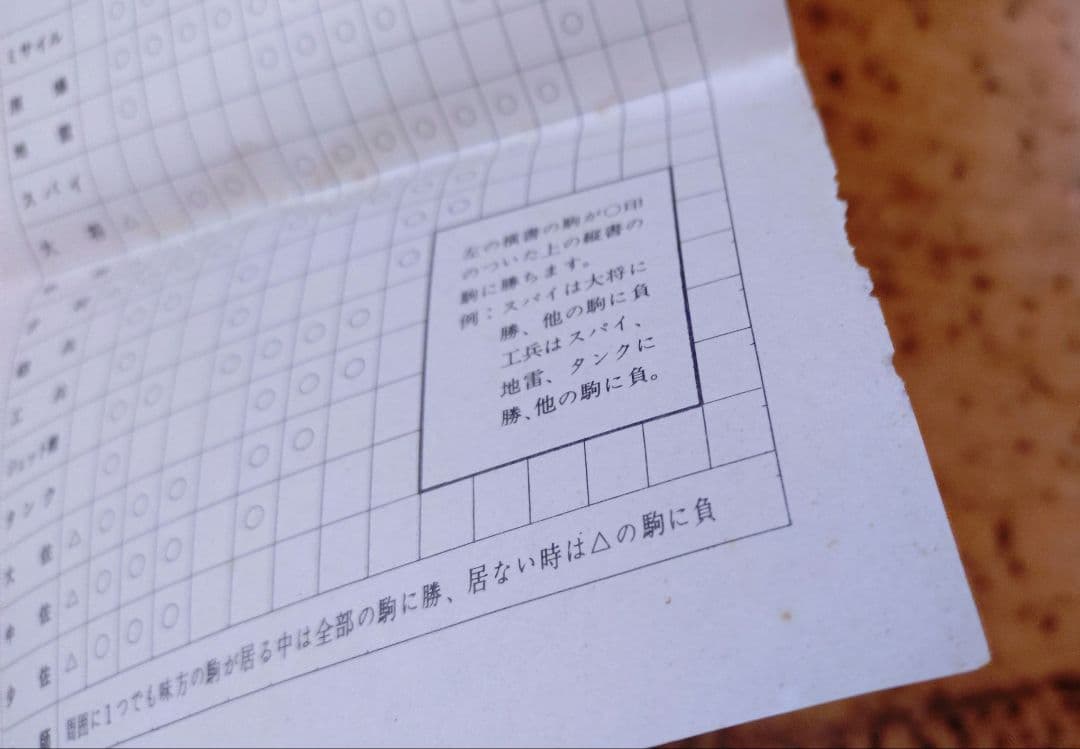 ミサイル
地雷
スパイ
工兵
ジェット機
タンク
大佐
中佐
少佐
左の横書の駒が○印
のついた上の縦書の
駒に勝ちます。
例：スパイは大将に
勝、他の駒に負
工兵はスパイ、
地雷、タンクに
勝、他の駒に負。
周囲に1つでも味方の駒が居る中は全部の駒に勝、居ない時は△の駒に負